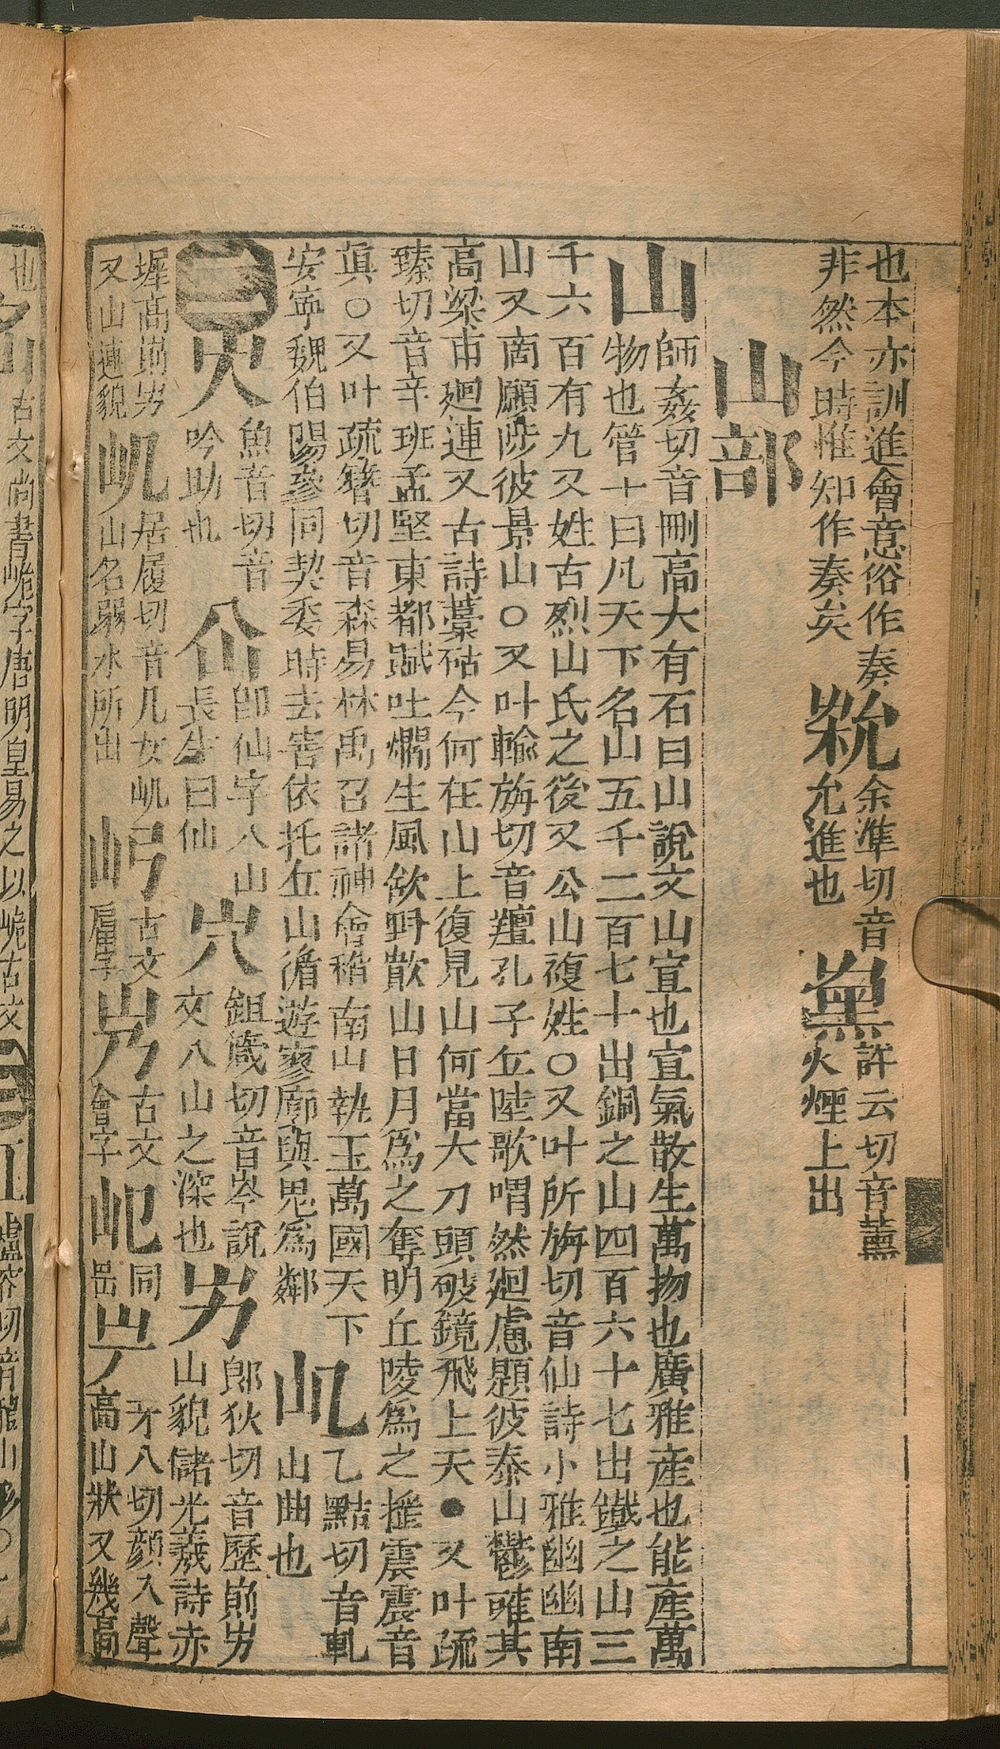 也本亦訓進會意俗作奏
非然今時惟知作奏矣
㽙余準切音
允進也
許云切音薰
火煙上出
山部
山師姦切音刪高大有石曰山說文山宣也宣氣散生萬物也廣雅產也能產萬
物也管十曰凡天下名山五千二百七十出銅之山四百六十七出鐵之山三
千六百有九又姓古烈山氏之後又公山複姓○又叶所旃切音仙詩小雅幽幽南
山又啇願陟彼景山○又叶輸旃切音羶孔子丘陵歌喟然廻慮題彼泰山鬱確其
高梁甫廻連又古詩藁砧今何在山上復見山何當大刀頭破鏡飛上天●又叶疏
臻切音辛班孟堅東都賦吐爓生風欱野歕山日月爲之奪明丘陵爲之摧震震音
眞○又叶疏簪切音森易林禹召諸神會稽南山執玉萬國天下
安寧魏伯陽參同契委時去害依托丘山循遊寥廓與鬼爲鄰
乢乙黠切音軋
山曲也
二
㞤魚音切音
吟助也
仚卽仙字人山
長生曰仙
屳鉏葴切音岑說
文入山之深也
屴郎狄切音歷崱屴
山貌儲光羲詩赤
墀高崱屴
又山連貌
屼居履切音几女屼
山名弱水所出
古文
扈字
岁古文
會字
屺同
岊
屵牙八切顔入聲
高山狀又㡬高
也
古文尚書峗字唐明皇易之以峗古文